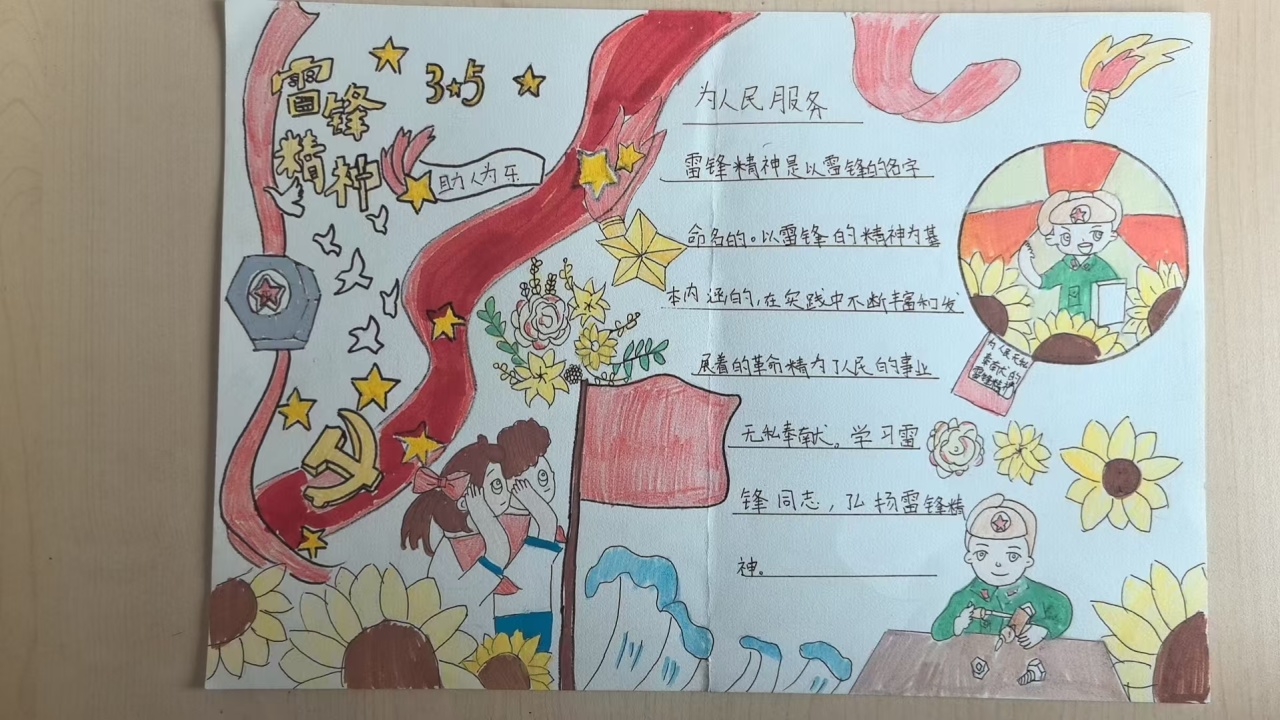 雷锋
精神
3 5
助人为乐
为人民服务
雷锋精神是以雷锋的名字
命名的。以雷锋的精神为基
本内涵的,在实践中不断丰富和发
展着的革命精为了人民的事业
无私奉献。学习雷
锋同志,弘扬雷锋精
神。
为人民无私
奉献的
雷锋精神